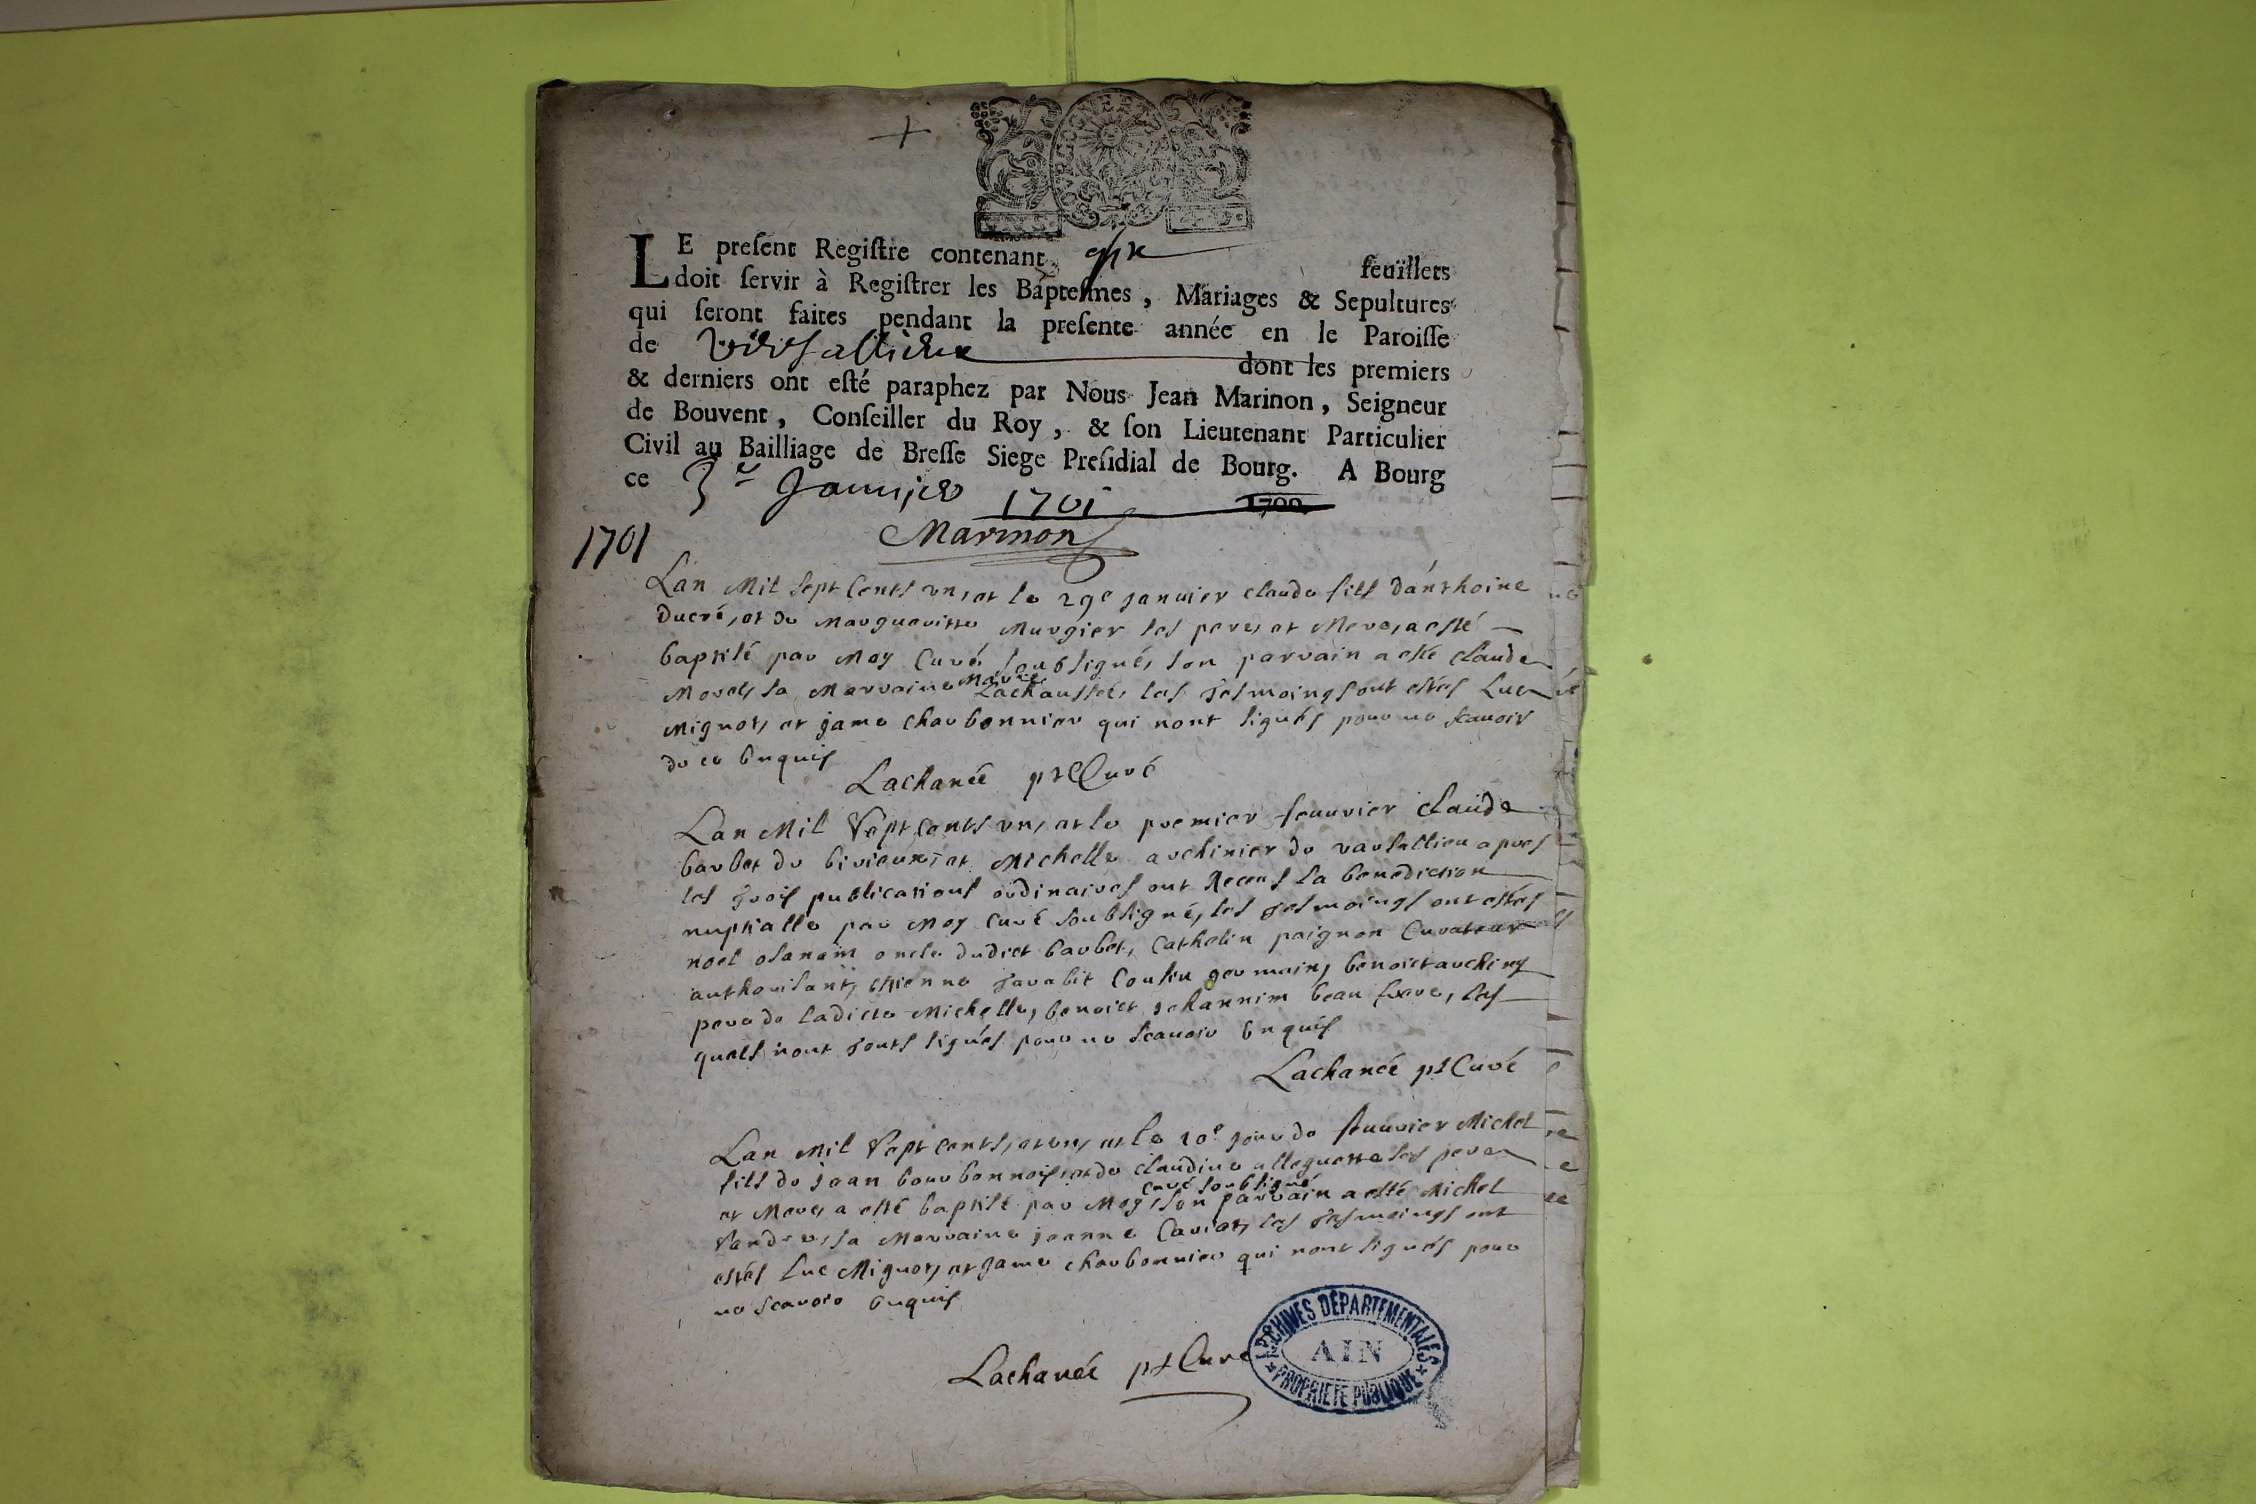 LE preſent Regiſtre contenant feuïllets
doit ſervir à Regiſtrer les Bapteſmes, Mariages & Sepultures
qui ſeront faites pendant la preſente année en le Paroiſſe
de Versallieux dont les premiers
& derniers ont eſté paraphez par Nous Jean Marinon, Seigneur
de Bouvent, Conſeiller du Roy, & ſon Lieutenant Particulier
Civil au Bailliage de Breſſe Siege Preſidial de Bourg. A Bourg
ce 3e Januier 1701 1700.
Marinon
1701
Lan Mil sept Cents un, et le 29e januier claude fils danthoine
Ducré, et de Margueritte Murgier ses pere, et Mere, a esté
baptisé par Moy Curé soubsigné, son parrain a esté claude
Morel, sa Marraine Marie Lachaussée, les tesmoings ont estés Luc
Mignot, et jame charbonnier qui nont signés pour ne scauoir
de ce Enquis
Lachanée ptCuré
Lan Mil Sept Cents un, et le premier feuurier claude
barbet de birieux, et Michelle auchinier de varsallieu apres
les trois publications ordinaires ont Receus la benediction
nuptialle par Moy Curé soubsigné, les tesmoings ont estés
noel osanam oncle dudict barbet, Cathelin paignon Curateur
authorisant, estienne sarabit Cousin germain, benoict
pere de ladicte Michelle, benoict jehannim beau frere, les
quels nont touts signés pour ne Scauoir Enquis
Lachanée pt Curé
Lan Mil Sept Cents, et un, et le 20e jour de feuurier Michel
fils de jean bourbonnois, et de claudine alleguette ses pere
et Mere, a esté baptisé par Moy Curé soubsigné, son parrain a esté Michel
sa Marraine jeanne Cauiot, les tesmoings ont
estés Luc Mignot, et jame charbonnier qui nont signés pour
ne scauoir Enquis
Lachanée pt Curé
ARCHIVES DÉPARTEMENTALES
AIN
PROPRIÉTÉ PUBLIQUE